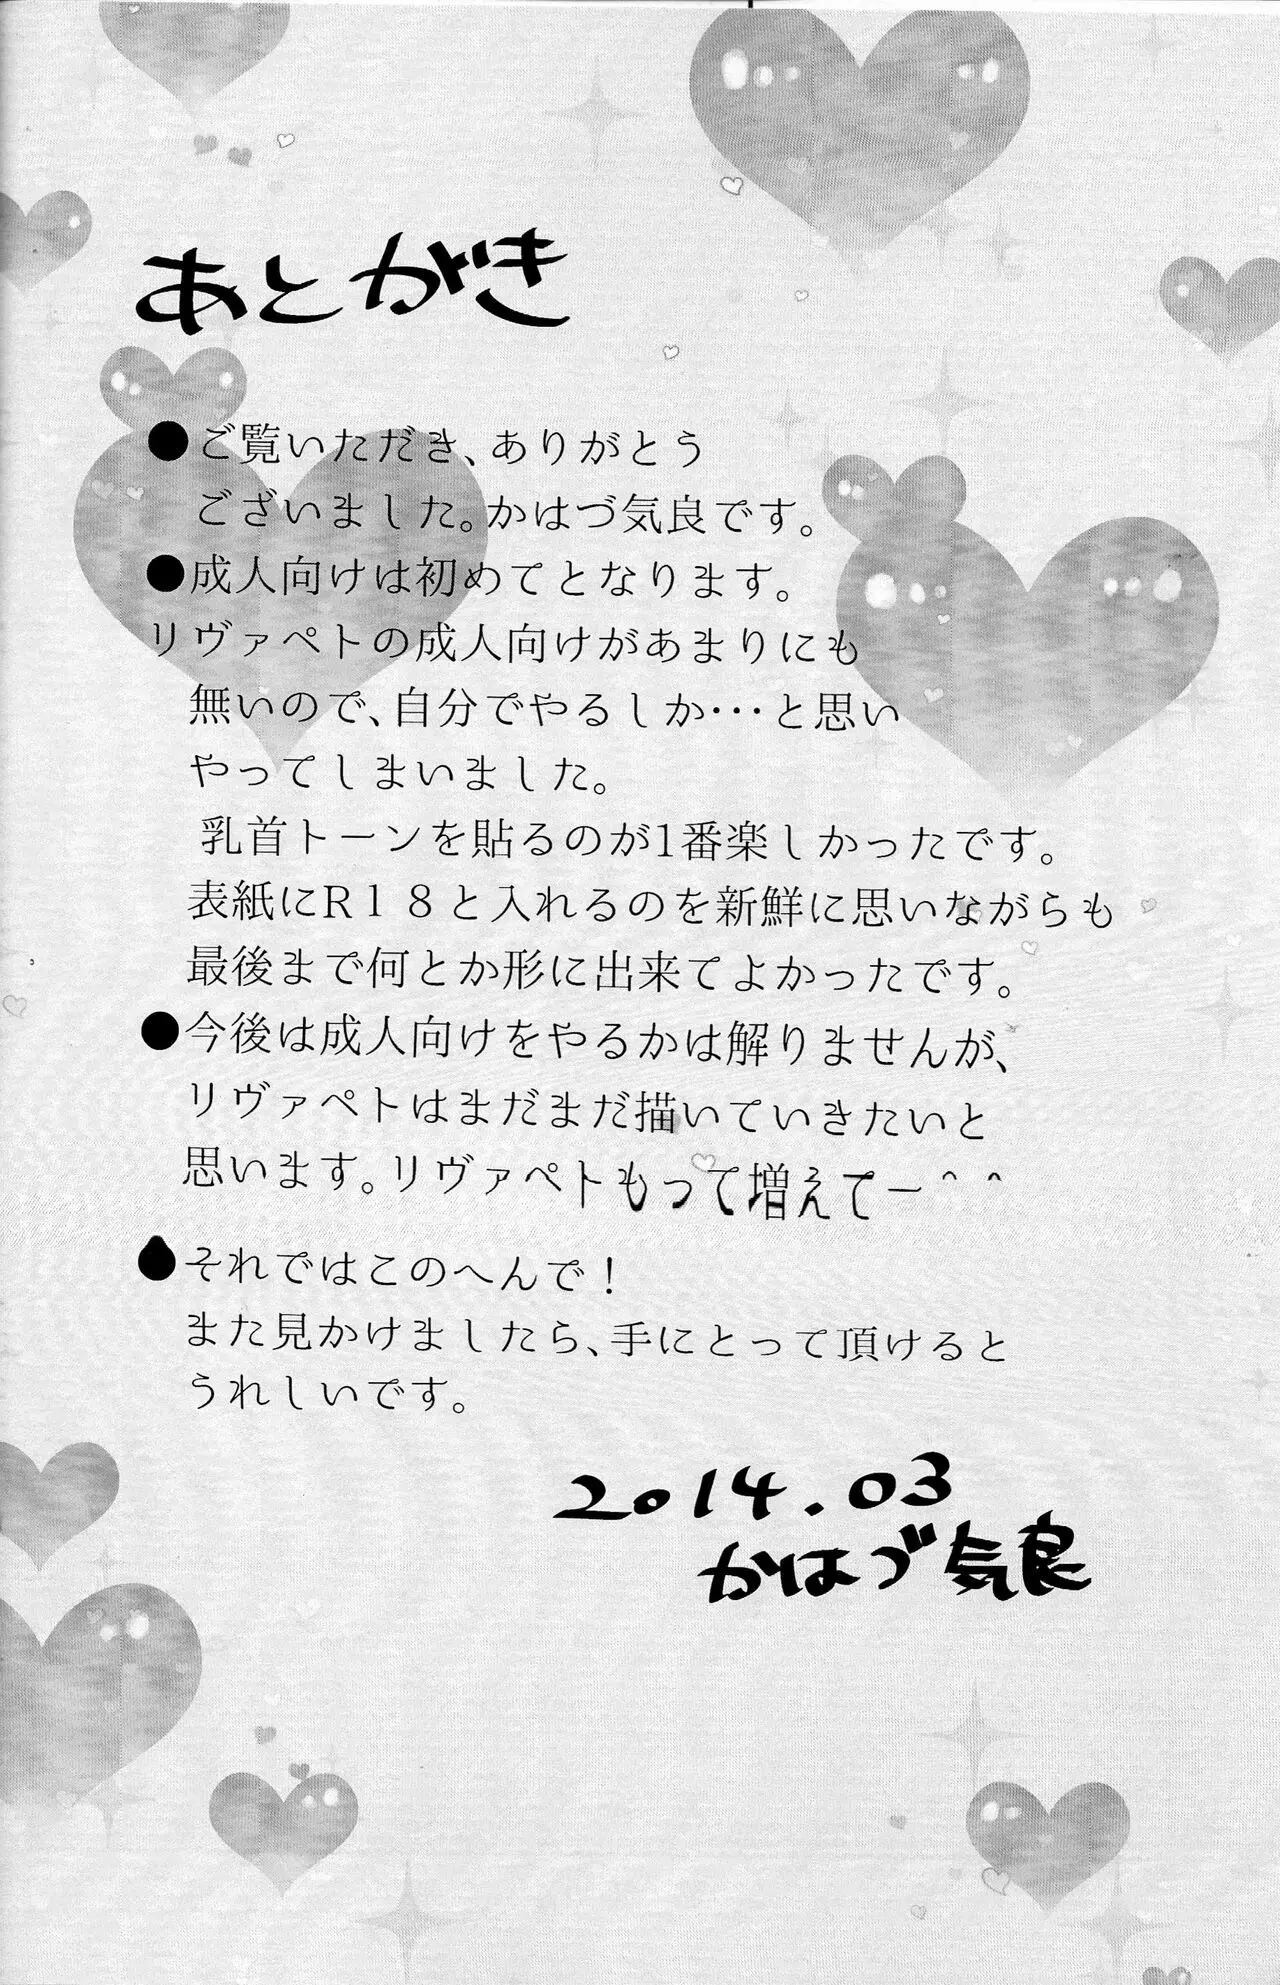 あとがき
●ご覧いただき、ありがとう
ございました。かはづ気良です。
●成人向けは初めてとなります。
リヴァペトの成人向けがあまりにも
無いので、自分でやるしか･･･と思い
やってしまいました。
乳首トーンを貼るのが1番楽しかったです。
表紙にR１８と入れるのを新鮮に思いながらも
最後まで何とか形に出来てよかったです。
●今後は成人向けをやるかは解りませんが、
リヴァペトはまだまだ描いていきたいと
思います。リヴァペトもって増えてー＾＾
●それではこのへんで！
また見かけましたら、手にとって頂けると
うれしいです。
2014.03
かはづ気良